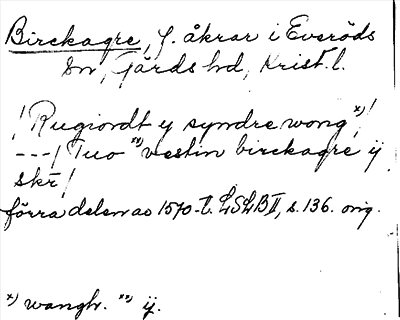 Birckagre, f. åkrar i Everöds
sn, Gärds hd, Krist. l.
/ Rugiordt y syndre wong x) /
---/ Tuo xx) vestin birckagre ij
skr /
förra delen av 1570-t. LSLB II, s. 136. orig.
x) wangh. xx) ij.